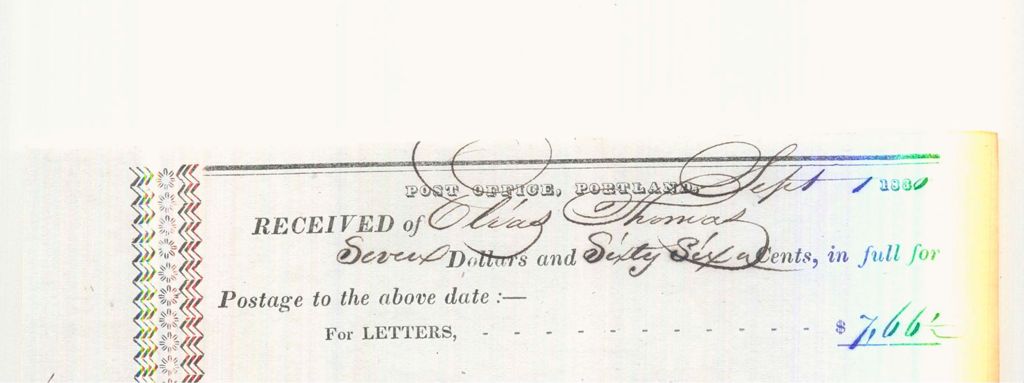 POST OFFICE, PORTLAND, Sept 1 18
RECEIVED of Elias Thomas
Seven Dollars and Sixty Six Cents, in full for
Postage to the above date :—
For LETTERS, - - - - - - - - - - - - - $ 7,66½